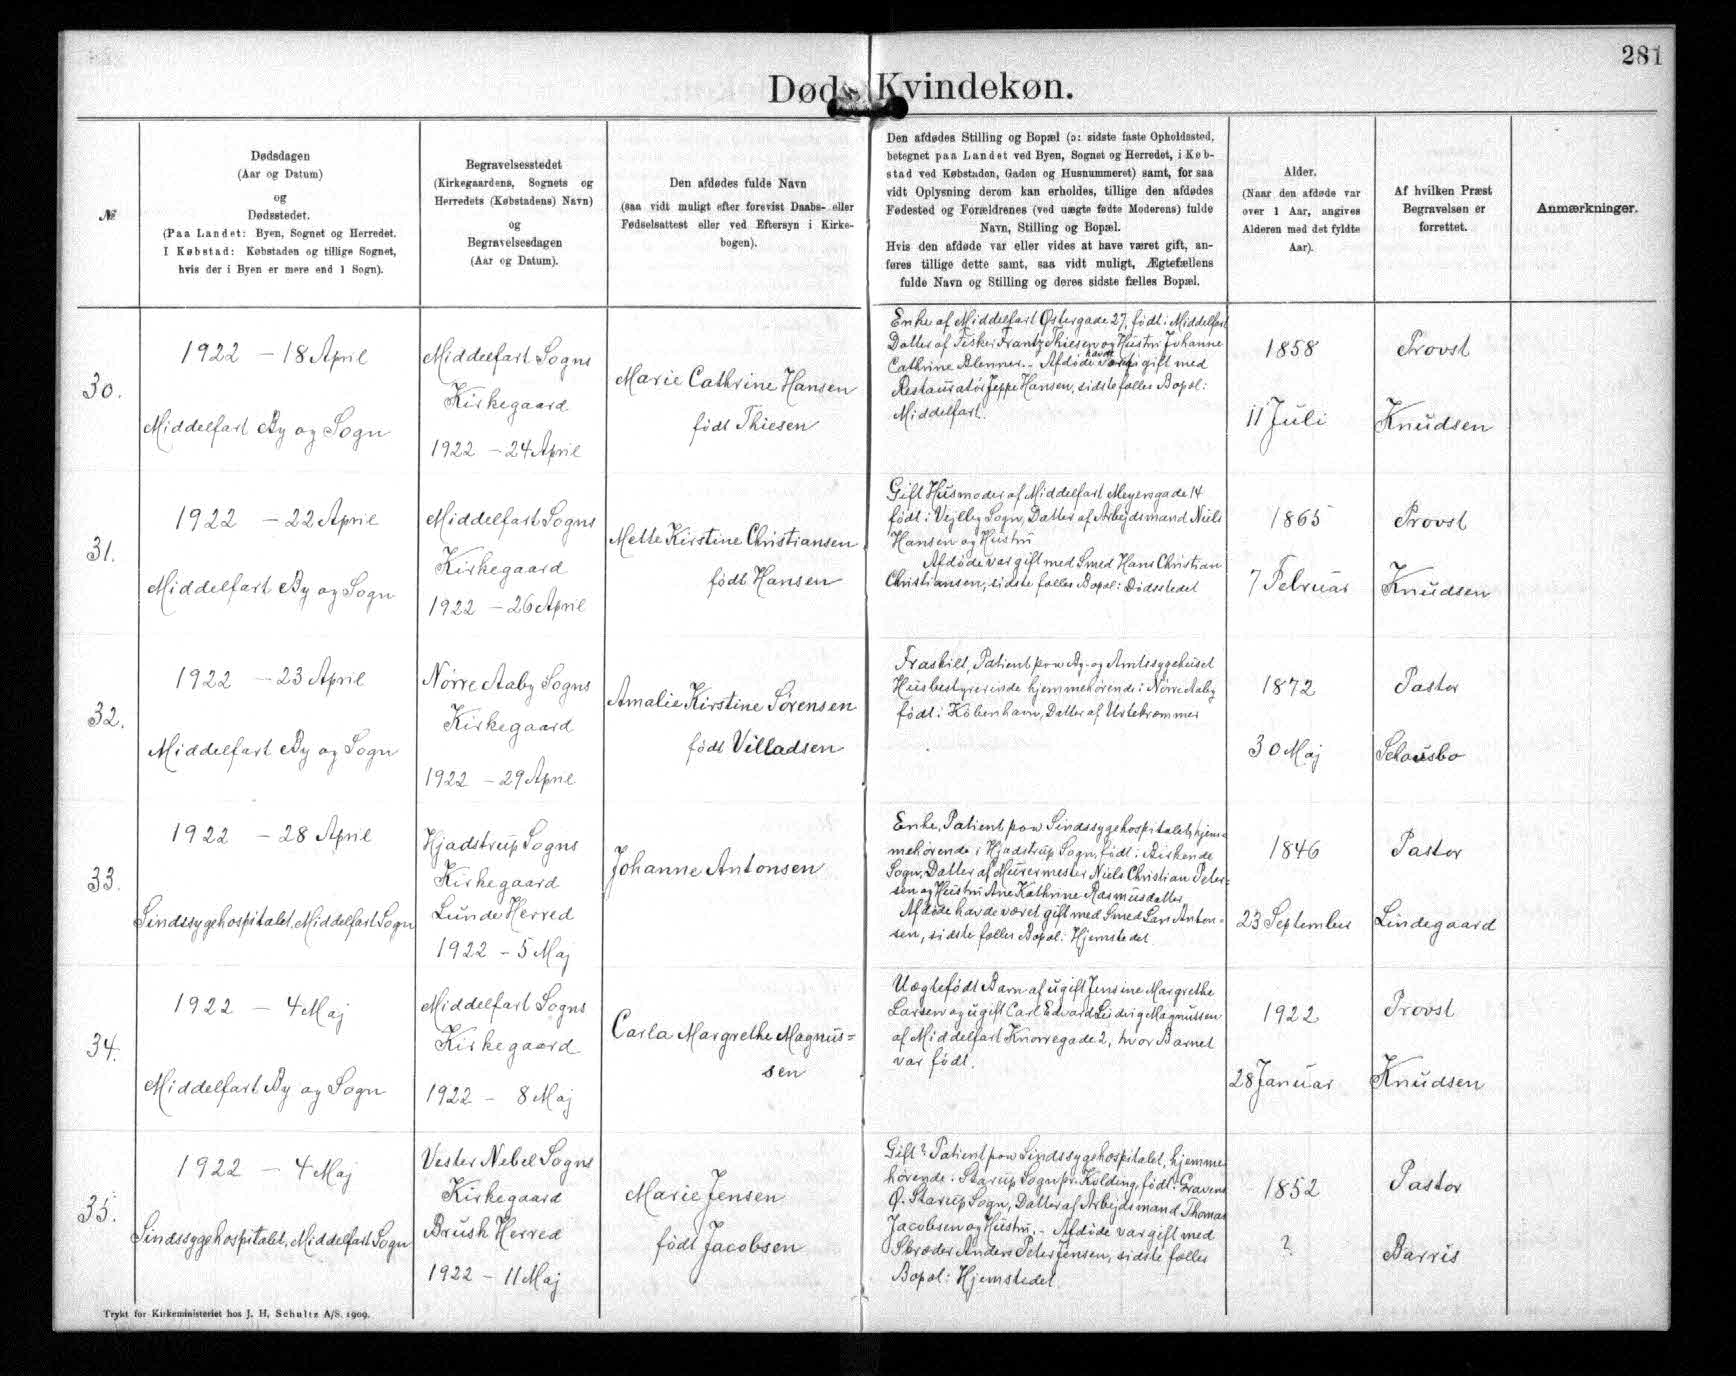 281
Døde Kvindekøn.
№
Dødsdagen
(Aar og Datum)
og
Dødsstedet.
(Paa Landet: Byen, Sognet og Herredet.
I Købstad: Købstaden og tillige Sognet,
hvis der i Byen er mere end 1 Sogn).
Begravelsesstedet
(Kirkegaardens, Sognets og
Herredets (Købstadens) Navn)
og
Begravelsesdagen
(Aar og Datum).
Den afdødes fulde Navn
(saa vidt muligt efter forevist Daabs- eller
Fødselsattest eller ved Eftersyn i Kirke-
bogen).
Den afdødes Stilling og Bopæl (ɔ: sidste faste Opholdssted,
betegnet paa Landet ved Byen, Sognet og Herredet, i Køb-
stad ved Købstaden, Gaden og Husnummeret) samt, for saa
vidt Oplysning derom kan erholdes, tillige den afdødes
Fødested og Forældrenes (ved uægte fødte Moderens) fulde
Navn, Stilling og Bopæl.
Hvis den afdøde var eller vides at have været gift, an-
føres tillige dette samt, saa vidt muligt, Ægtefællens
fulde Navn og Stilling og deres sidste fælles Bopæl.
Alder.
(Naar den afdøde var
over 1 Aar, angives
Alderen med det fyldte
Aar).
Af hvilken Præst
Begravelsen er
forrettet.
Anmærkninger.
30.
1922 - 18 April
Middelfart By og Sogn
Middelfart Sogns
Kirkegaard
1922 - 24 April
Marie Cathrine Hansen
født Thiesen
Enke af Middelfart Østergade 27, født i Middelfart
Datter af Fisker Frantz Thiesen og Hustru Johanne
Cathrine Blenner. - Afdøde havde været gift med
Restauratør Jeppe Hansen, sidste fælles Bopæl:
Middelfart.
1858
11 Juli
Provst
Knudsen
31.
1922 - 22 April
Middelfart By og Sogn
Middelfart Sogns
Kirkegaard
1922 - 26 April
Mette Kirstine Christiansen
født Hansen
Gift Husmoder af Middelfart Meyersgade 14
født i Vejlby Sogn, Datter af Arbejdsmand Niels
Hansen og Hustru
Afdøde var gift med Smed Hans Christian
Christiansen, sidste fælles Bopæl: Dødsstedet
1865
7 Februar
Provst
Knudsen
32.
1922 - 23 April
Middelfart By og Sogn
Nørre Aaby Sogns
Kirkegaard
1922 - 29 April
Amalie Kirstine Sørensen
født Villadsen
Fraskilt, Patient paa By- og Amtssygehuset
Husbestyrerinde hjemmehørende i Nørre Aaby
født i København, Datter af Urtekræmmer
1872
30 Maj
Pastor
Schousbo
33.
1922 - 28 April
Sindssygehospitalet, Middelfart Sogn
Hjadstrup Sogns
Kirkegaard
Lunde Herred
1922 - 5 Maj
Johanne Antonsen
Enke, Patient paa Sindssygehospitalet, hjem-
mehørende i Hjadstrup Sogn, født i Birkende
Sogn, Datter af Murermester Niels Christian Peter-
sen og Hustru Ane Kathrine Rasmusdatter
Afdøde havde været gift med Smed Lars Anton-
sen, sidste fælles Bopæl: Hjemstedet
1846
23 September
Pastor
Lindegaard
34.
1922 - 4 Maj
Middelfart By og Sogn
Middelfart Sogns
Kirkegaard
1922 - 8 Maj
Carla Margrethe Magnus=
sen
Uægtefødt Barn af ugift Jensine Margrethe
Larsen og ugift Carl Edvard Ludvig Magnussen
af Middelfart Knorregade 2, hvor Barnet
var født.
1922
28 Januar
Provst
Knudsen
35.
1922 - 4 Maj
Sindssygehospitalet, Middelfart Sogn
Vester Nebel Sogns
Kirkegaard
Brusk Herred
1922 - 11 Maj
Marie Jensen
født Jacobsen
Gift? Patient paa Sindssygehospitalet, hjemme-
hørende i Starup Sogn pr. Kolding, født i Gravens
Ø. Starup Sogn, Datter af Arbejdsmand Thomas
Jacobsen og Hustru. - Afdøde var gift med
Skræder Anders Peter Jensen, sidste fælles
Bopæl: Hjemstedet
1852
?
Pastor
Barris
Trykt for Kirkeministeriet hos J. H. Schultz A/S. 1909.